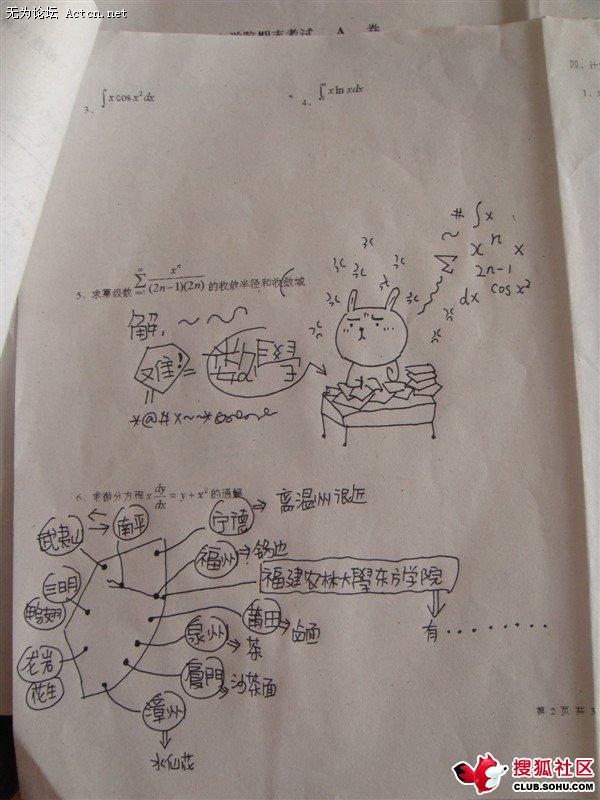 无为论坛 Actcn.net
学院期末考试 A 卷
四、计
1、
3、∫ x cos x² dx
4、∫ x ln x dx
# ∫ x
~ x^n x
Σ 2n-1
dx cos x²
5、求幂级数 ∑ x^n/((2n-1)(2n)) 的收敛半径和收敛域
解：~ ~ ~
难! = 數學
*@#x~~*
6、求微分方程 x dy/dx = y + x² 的通解
武夷山 南平 宁德 ⇒ 离温州很近
福州 ⇒ 锅边
三明 福建农林大學东方学院
鸭翅 莆田 ⇒ 卤面 有 · · · · · · ·
泉州 ⇒ 茶
龙岩 厦門 ⇒ 沙茶面
花生 漳州
水仙花
第 2 页 共 3
搜狐社区
CLUB.SOHU.COM